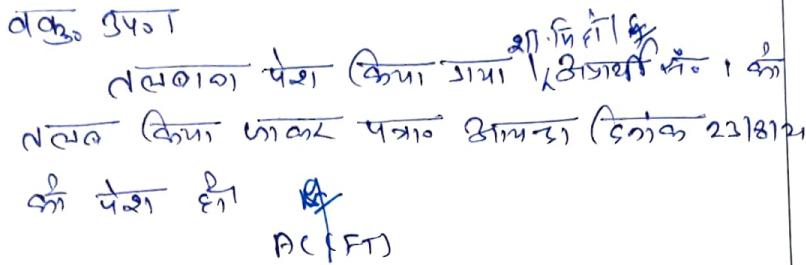 वकु० उप०।
शा. मि हो।
तलवाना पेश किया गया। अप्रार्थी सं० 1 को
तलब किया जाकर पत्रा० आयन्दा दिनांक 23/8/21
को पेश हो।
AC (FT)